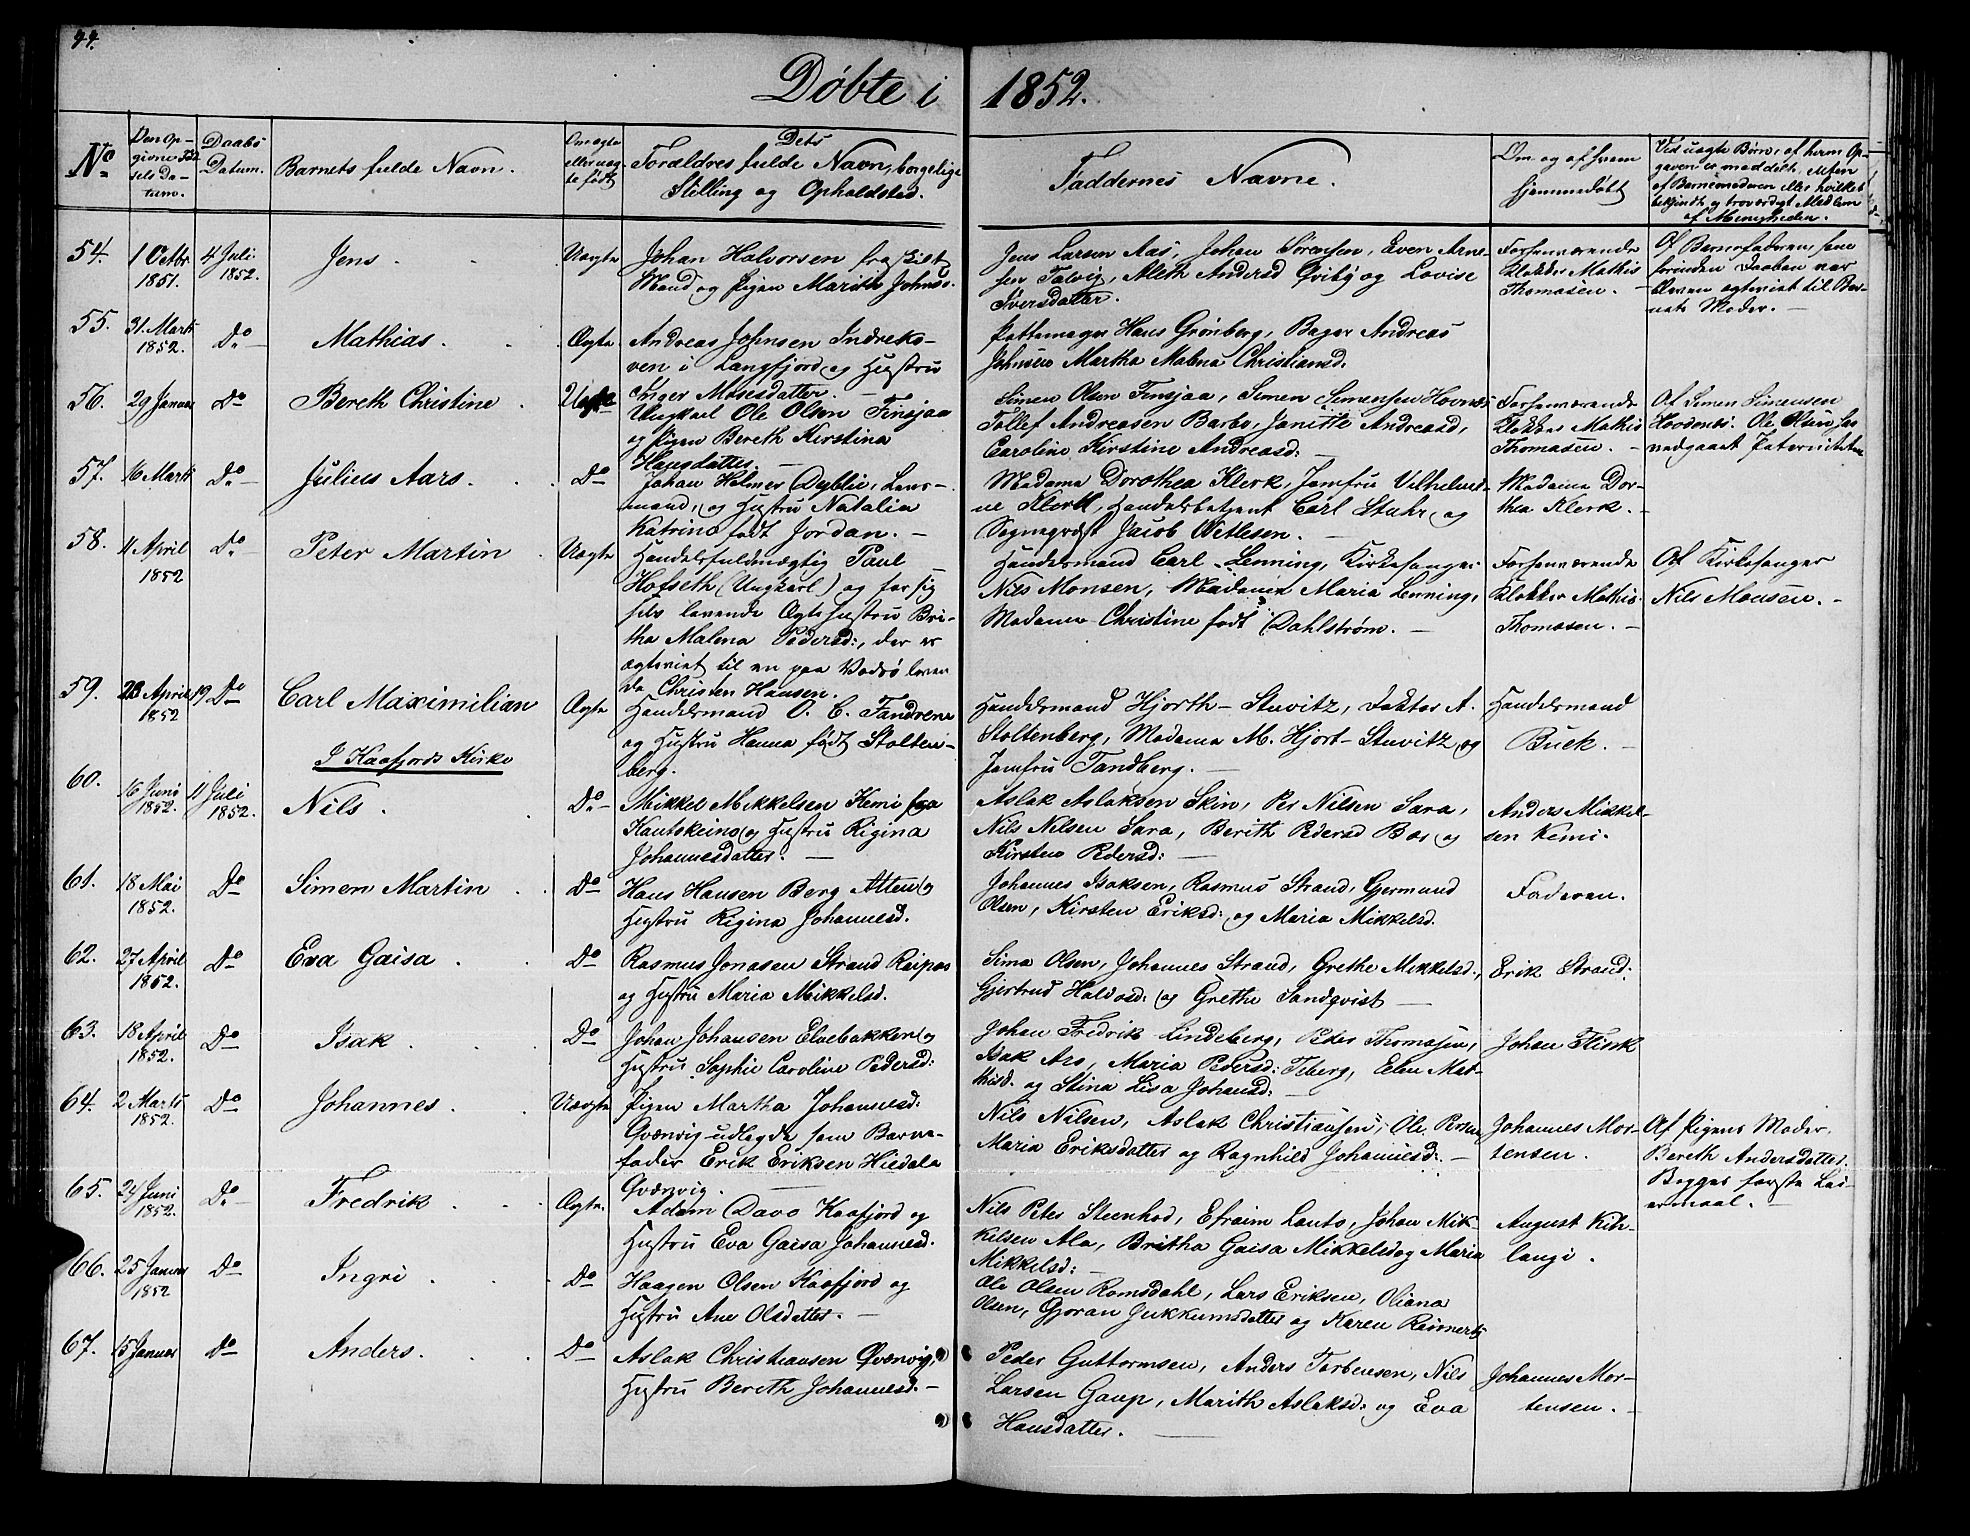 Døbte i 1852.
No
Den Op-
givne Fød
sels Da-
tum.
Daabs
Datum.
Barnets fulde Navn.
Om ægte
eller uæg-
te født
Dets
Forældres fulde Navn, borgelige
Stilling og Opholdsted.
Faddernes Navne.
Om og af hvem
hjemmedøbt
Ved uægte Børn, af hvem Op-
gaven er meddelt. Enten
af Barnemoderen eller hvilket
bekjendt og troværdigt Medlem
af Menigheden.
54.
1 Octbr
1851.
4 Juli
1852.
Jens
Uægte
Johan Halvorsen fraskilt
Mand og Pigen Marith Johnsd.
Jens Larsen Aas, Johan Sörensen, Even Arne-
sen Talvig, Aleth Andersd Qviby og Lovise
Iversdatter.
Forhenværende
Klokker Mathis
Thomasen.
Af Barnefaderen, som
forinden Daaben var
bleven ægteviet til Bar-
nets Moder.
55.
31 Marts
1852.
Do
Mathias.
Ægte
Andreas Johnsen Indreko-
ven i Langfjord og Hustru
Inger Mosesdatter.
Pottemager Hans Grønberg, Bager Andreas
Johnsen Martha Malena Christiansd.
56.
29 Januar
Do
Bereth Christine
Uægte
Ungkarl Ole Olsen Finsjaa
og Pigen Bereth Kirstina
Hansdatter.
Simen Olsen Finsjaa, Simen Simensen Hovnæs
Tollef Andreasen Barbo, Janitte Andreasd,
Caroline Kirstine Andreasd:
Forhenværende
Klokker Mathis
Thomasen.
Af Simen Simensen
Hovdenes. Ole Olsen har
vedgaaet Paterniteten
57.
16 Marts
Do
Julius Aars.
Do
Johan Holmer Dyblie, Lens-
mand, og Hustru Natalia
Katrina født Jordan.
Madama Dorothea Klerk, Jomfru Vilhelmi-
ne Klerk, Handelsbetjent Carl Stuhr og
Sogneprest Jacob Wetlesen.
Madama Dor-
thea Klerk.
58.
11 April
1852
Do
Peter Martin
Uægte
Handelsfuldmægtig Paul
Hofseth (Ungkarl) og for sig
selv levende Ægte Hustru Bri-
tha Malena Pedersd:, der er
ægteviet til en paa Vadsö leven
de Christen Hansen.
Handelsmand Carl Lenning, Kirkesanger
Nils Monsen, Madama Maria Lenning,
Madama Christine født Dahlstrøm.
Forhenværende
Klokker Mathis
Thomasen.
Af Kirkesanger
Nils Monsen.
59.
23 April
1852
19 Do
Carl Maximilian
Ægte
Handelsmand O. C. Fandrem
og Hustru Hanna født Stolten-
berg.
Handelsmand Hjorth-Stuvitz, Doktor A.
Stoltenberg, Madama M. Hjort-Stuvitz og
Jomfru Tandberg.
Handelsmand
Buck.
I Kaafjords Kirke
60.
16 Juni
1852.
11 Juli
1852.
Nils.
Do
Mikkel Mikkelsen Kemi fra
Kautokeino og Hustru Rigina
Johannesdatter.
Aslak Aslaksen Skin, Per Nilsen Sara,
Nils Nilsen Sara, Berith Pedersd Bær og
Kirsten Pedersd:
Anders Mikkel-
sen Kemi.
61.
18 Mai
1852.
Do
Simen Martin
Do
Hans Hansen Berg Alten og
Hustru Rigina Johannesd.
Johannes Isaksen, Rasmus Strand, Gjermund
Olsen, Kirsten Eriksd: og Maria Mikkelsd.
Faderen.
62.
27 April
1852.
Do
Eva Gaisa
Do
Rasmus Jonasen Strand Raipas
og Hustru Maria Mikkelsd.
Sima Olsen, Johannes Strand, Grethe Mikkelsd.,
Gjertrud Haldosd: og Grethe Sandqvist
Erik Strand.
63.
18 April
1852.
Do
Isak
Do
Johan Johansen Elvebakken og
Hustru Sophie Caroline Pedersd:
Johan Fredrik Lindeberg, Peder Thomasen,
Isak Aro, Maria Pedersd: Teberg, Elen Mat-
hisd. og Stina Lisa Johansd:
Johan Flink
64.
2 Marts
1852.
Do
Johannes
Uægte
Pigen Martha Johannesd:
Qvænvig udlagde som Barne-
fader Erik Eriksen Hiedala
Qvænvig.
Nils Nilsen, Aslak Christiansen, Ole Persen
Maria Eriksdatter og Ragnhild Johannesd:
Johannes Mor-
tensen.
Af Pigens Moder,
Bereth Andersdatter.
Begges første Lei-
ermaal.
65.
24 Juni
1852.
Do
Fredrik
Ægte.
Adam Davo Kaafjord og
Hustru Eva Gaisa Johannesd.
Nils Peter Steenhod, Efraim Lauto, Johan Mik-
kelsen Ala, Britha Gaisa Mikkelsd og Maria
Mikkelsd:
August Kih-
langi.
66.
25 Januar
1852
Do
Ingri
Do
Haagen Olsen Kaafjord og
Hustru Ane Olsdatter.
Ole Olsen Romsdahl, Lars Eriksen, Oliana
Olsen, Gjoran Jukkumsdatter og Karen Reinerts
67.
15 Januar
Do
Anders.
Do
Aslak Christiansen Qvænvig,
Hustru Bereth Johannesd.
Peder Guttormsen, Anders Torbensen, Nils
Larsen Gaup, Marith Aslaksd: og Eva
Hansdatter.
Johannes Mor-
tensen.